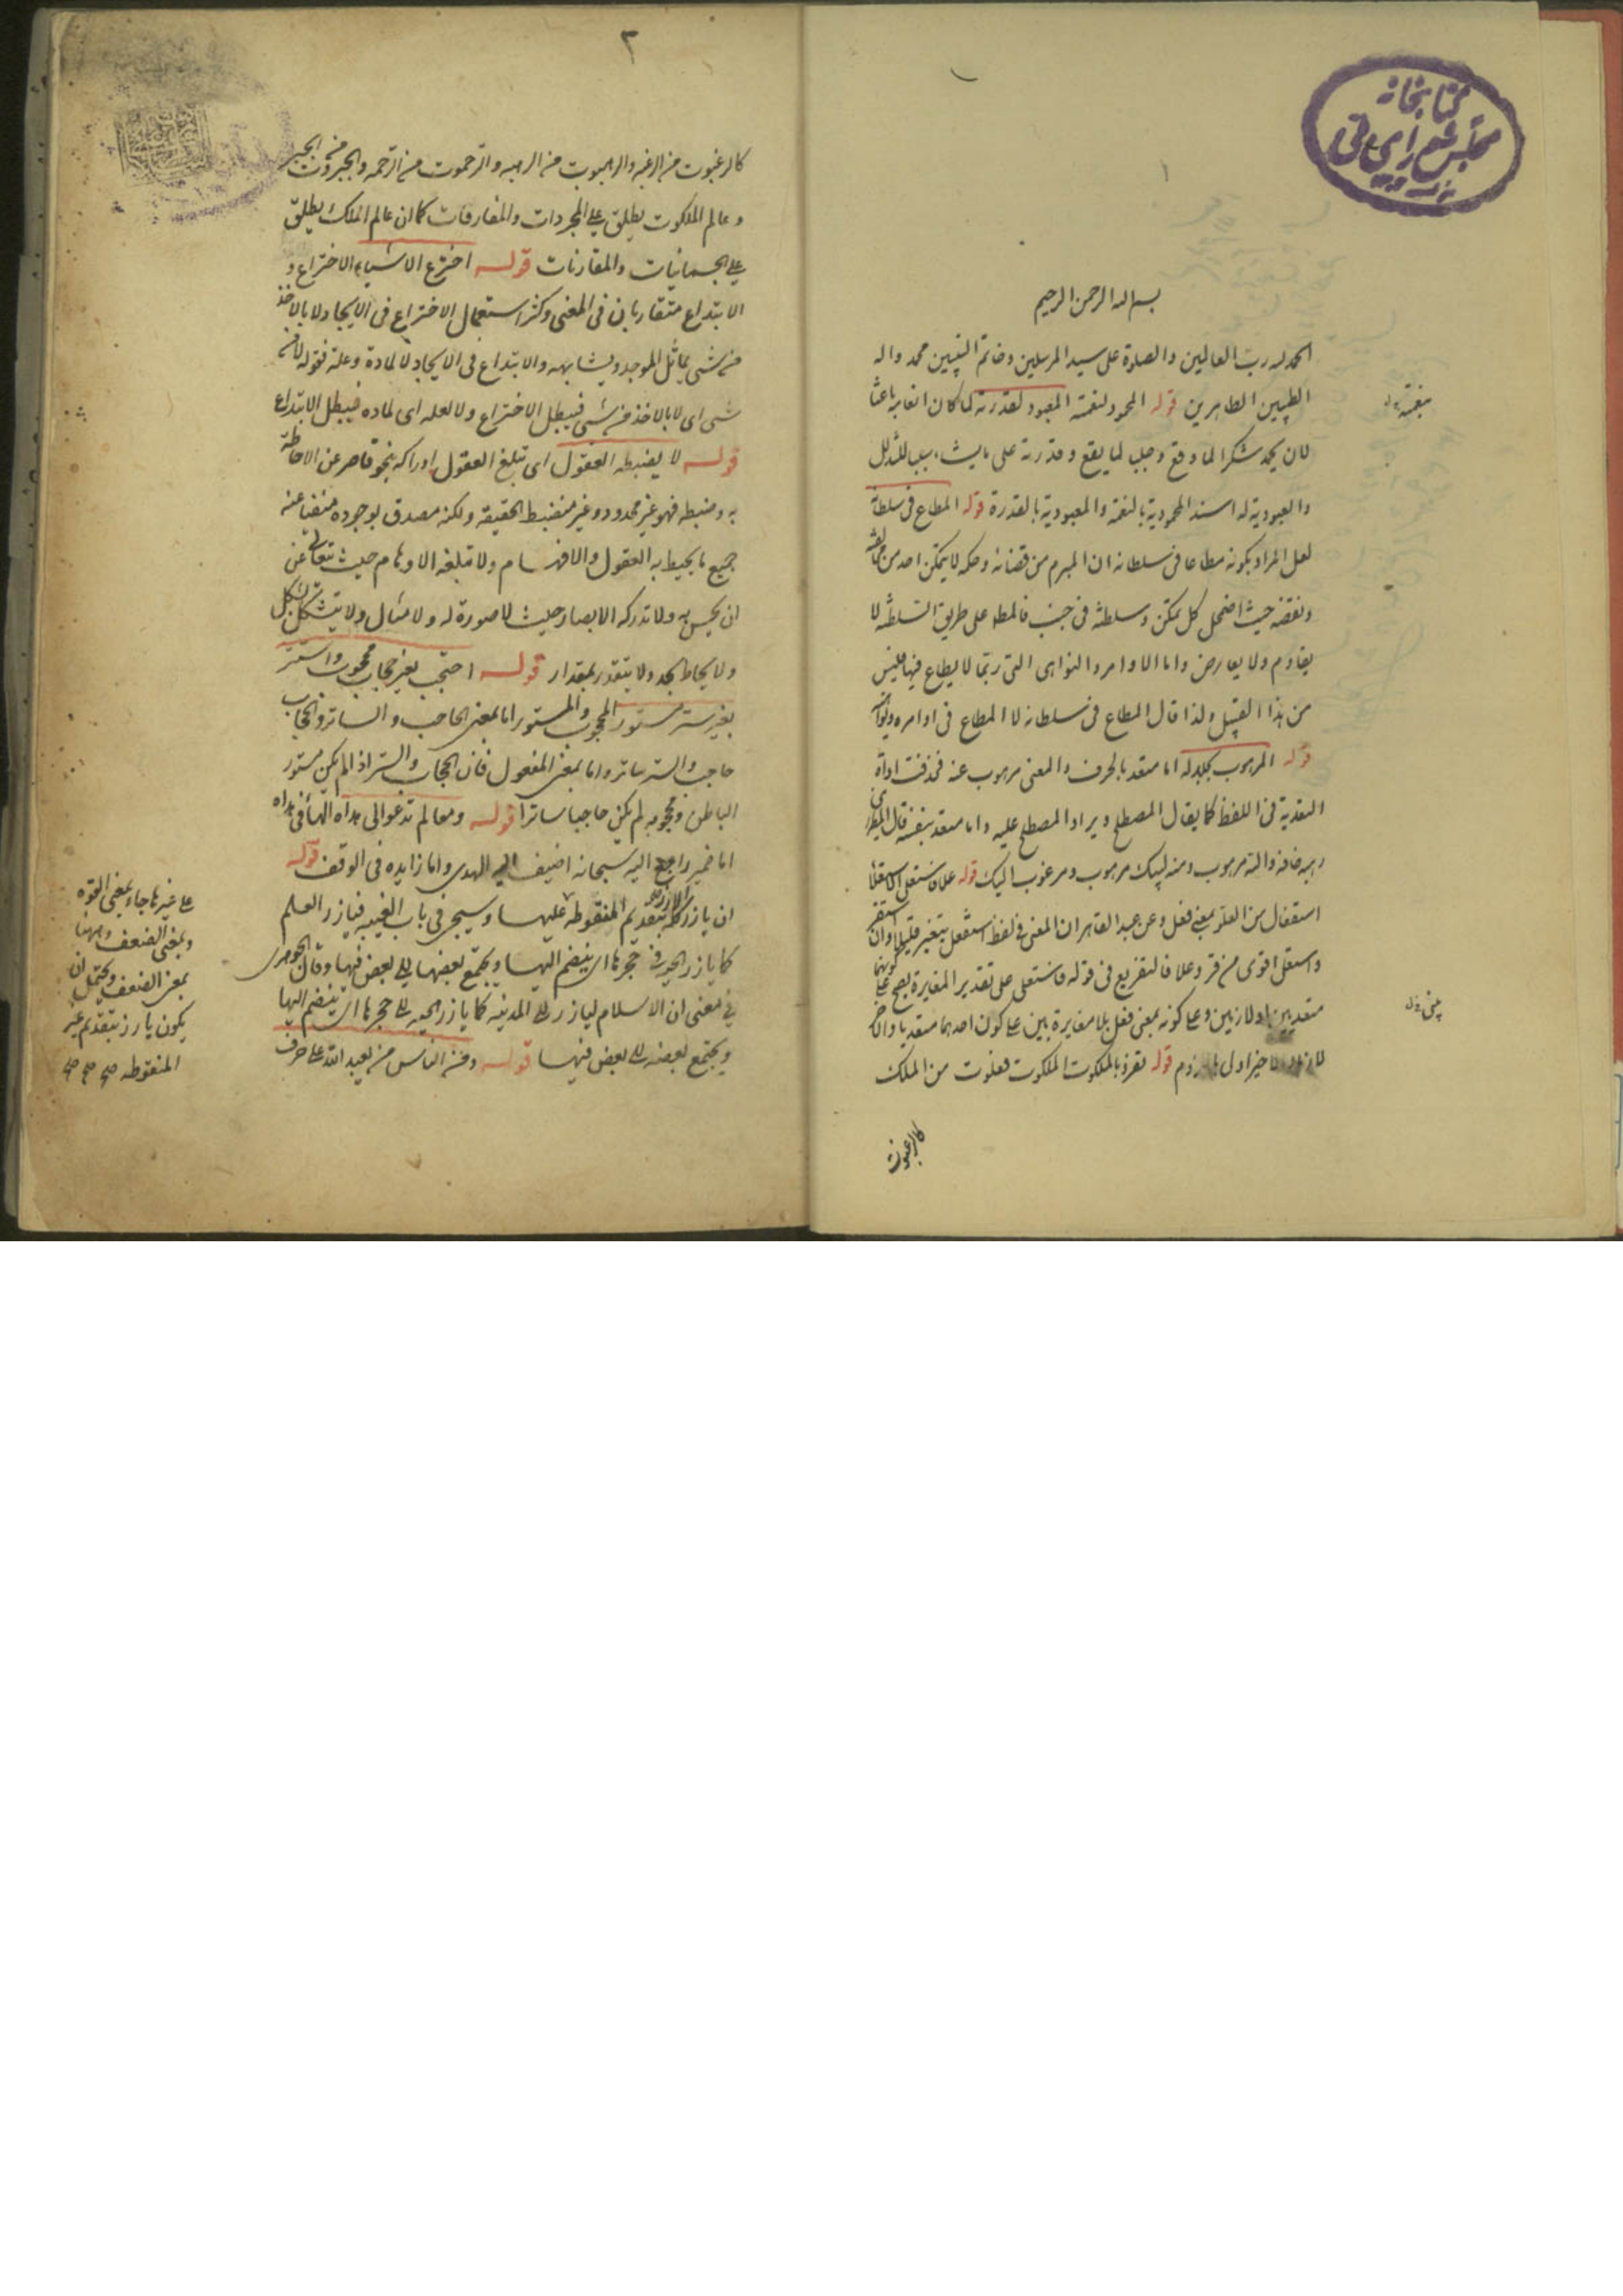 كتابخانه
مجلس شورای ملی
١
بسم الله الرحمن الرحيم
الحمد لله رب العالمين والصلوة على سيد المرسلين وخاتم النبيين محمد واله
الطيبين الطاهرين قوله المحمود لنعمته المعبود لقدرته لما كان انعامه باعثا
بنعمته
لان يحمد شكرا لما وقع وجلبا لما يقع وقدرته على ما يشاء سببا للتذلل
والعبودية له اسند المحمودية بالنعمة والمعبودية بالقدرة قوله المطاع فى سلطانه
لعل المراد بكونه مطاعا فى سلطانه ان المبرم من قضائه وحكمه لا يتمكن احد من مخالفته
ونقضه حيث اضمحل كل ممكن وسلطنته فى جنب على طريق السلطنة لا
يقاوم ولا يعارض واما الاوامر والنواهى التى ربما لا يطاع فيها فليس
من هذا القبيل ولذا قال المطاع فى سلطانه لا المطاع فى اوامره ونواهيه
قوله المرهوب لجلاله اما متعد بالحرف والمعنى مرهوب عنه فحذفت اداة
التعدية فى اللفظ كما يقال المصطلح ويراد المصطلح عليه واما متعد بنفسه قال المطرزى
رهبه خافه والله مرهوب ومنه لبيك مرهوب ومرغوب اليك قوله علا فاستعلى الاستعلاء
استفعال من العلو بمعنى فعل وعن عبد القاهر ان المعنى فى لفظ استفعل يتغير قليلا وان استقر
واستعلى اقوى من قر وعلا فالتفريع فى قوله فاستعلى على تقدير المغايرة يصح على كونهما
متعديين او لازمين وعلى كونه بمعنى فعل بلا مغايرة بين على كون احدهما متعديا والاخر
لازما والاخير اولى قوله تفرد بالملكوت الملكوت فعلوت من الملك
كالرغبوت
٢
كالرغبوت من الرغبة والرهبوت من الرهبة والرحموت من الرحمة والجبروت من الجبر
وعالم الملكوت يطلق على المجردات والمفارقات كما ان عالم الملك يطلق
على الجسمانيات والمقارنات قوله اخترع الاشياء الاختراع و
الابتداع متقاربان فى المعنى وكثر استعمال الاختراع فى الايجاد لا بالاخذ
من شىء يماثل الموجد ويشابهه والابتداع فى الايجاد لا لمادة وعلة فقوله لا من
شىء اى لا بالاخذ من شىء فيبطل الاختراع ولا لعلة اى لمادة فيبطل الابتداع
قوله لا يضبطه العقول اى تبلغ العقول ادراكه بنحو قاصر عن الاحاطة
به وضبطه فهو غير محدود وغير منضبط الحقيقة ولكنه مصدق بوجوده منفيا عنه
جميع ما يحيط به العقول والافهام ولا تبلغه الاوهام حيث تعالى عن
ان يحس به ولا تدركه الابصار حيث لا صورة له ولا مثال ولا يتشكل بشكل
ولا يحاط بحد ولا يتقدر بمقدار قوله احتجب بغير حجاب محجوب واستتر
بغير ستر مستور المحجوب والمستور اما بمعنى الحاجب والساتر والحجاب
حاجب والستر ساتر واما بمعنى المفعول فان الحجاب والستر اذا لم يكن مستور
الباطن ومحجوبه لم يكن حاجبا ساترا قوله ومعالم تدعو الى هداه الهاء فى هداه
اما ضمير راجع اليه سبحانه اضيف اليه الهدى واما زايده فى الوقف قوله
ان يازر كله بتقديم المنقوطة عليها وسيجئ فى باب الغيبة فيازر العلم
كما يازر الحية فى جحرها اى ينضم اليها ويجتمع بعضها الى بعض فيها وقال الجوهرى
فى معنى ان الاسلام ليازر الى المدينة كما يازر الحية الى جحرها اى ينضم اليها
ويجتمع بعضه الى بعض فيها قوله ومن الناس من يعبد الله على حرف
على غيرها جاء بمعنى القوة
وبمعنى الضعف وههنا
بمعنى الضعف ويحتمل ان
يكون يارز بتقديم غير
المنقوطه صح صح صح